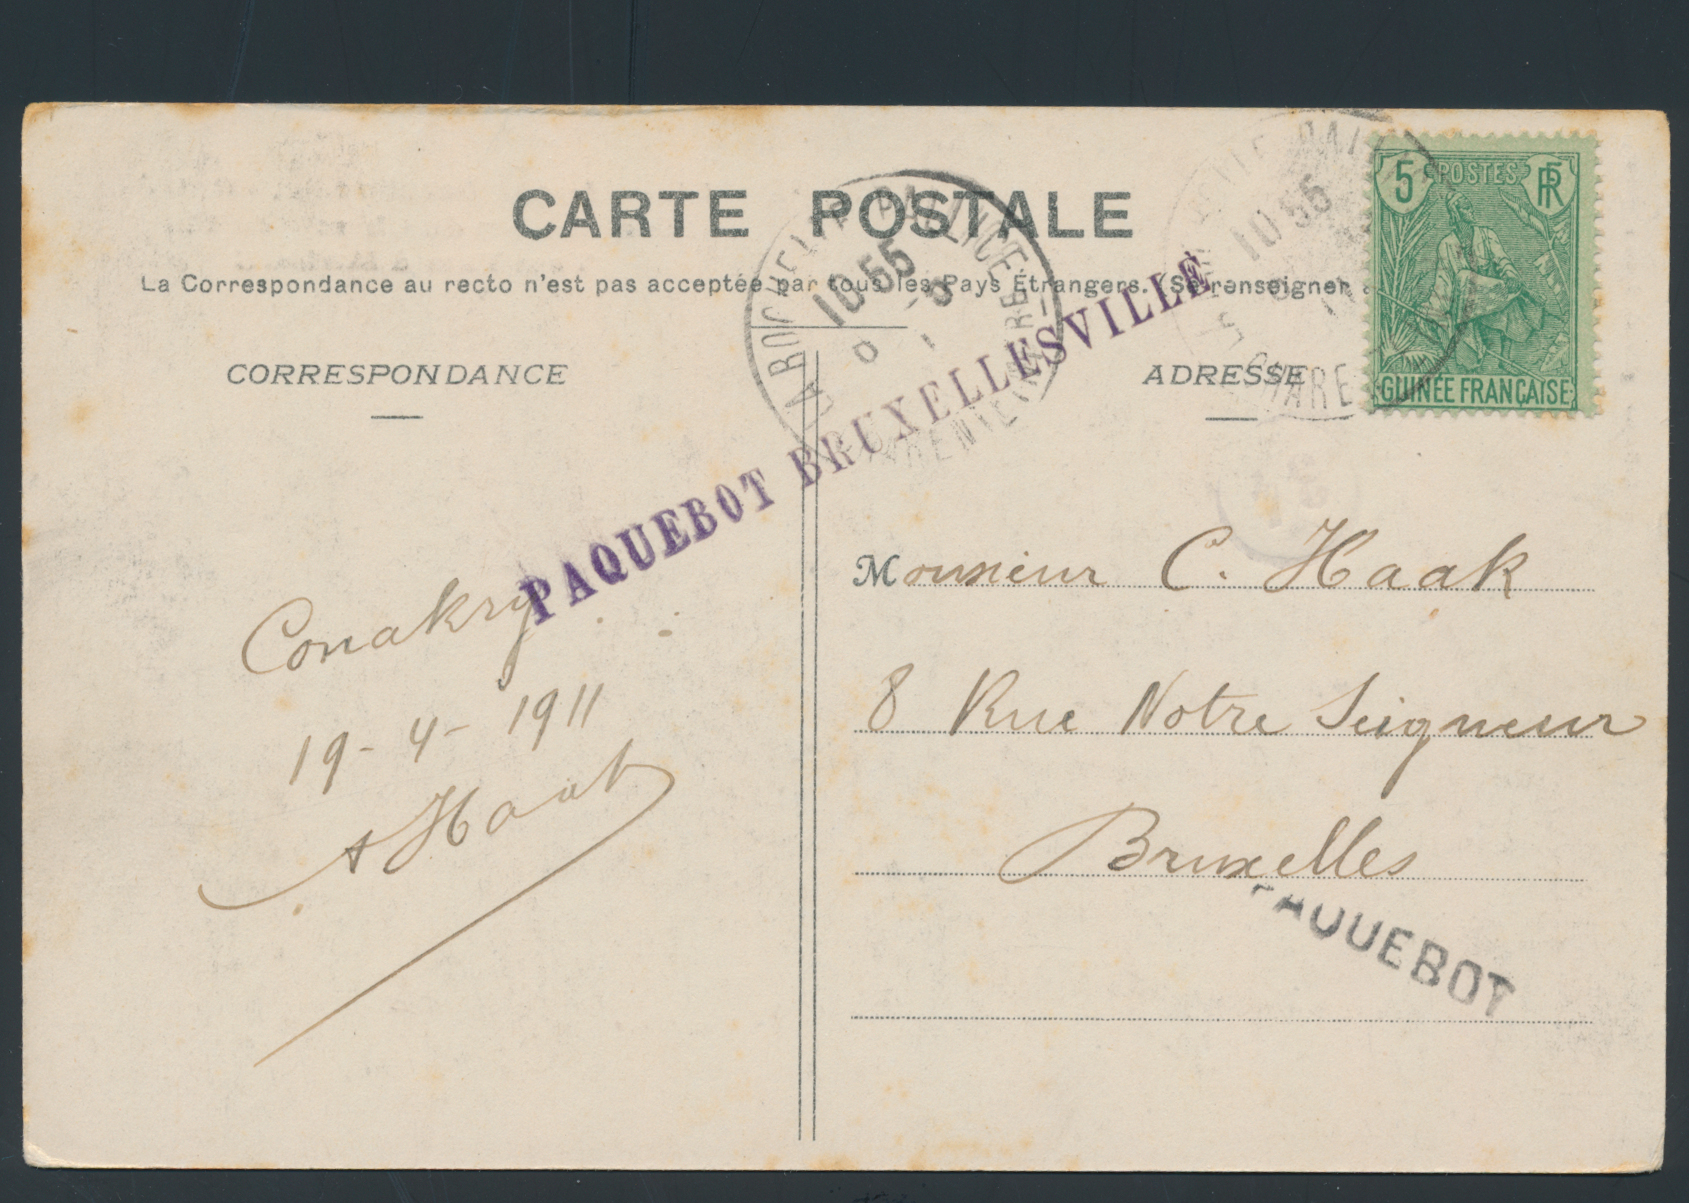 CARTE POSTALE
La Correspondance au recto n'est pas acceptée par tous les Pays Étrangers. (Se renseigner
CORRESPONDANCE
ADRESSE
5 POSTES RF
GUINÉE FRANÇAISE
LA ROCHELLE PALLICE
10·55
PAQUEBOT BRUXELLESVILLE
10·55
Conakry
19-4-1911
Haak
Monsieur C. Haak
8 Rue Notre Seigneur
Bruxelles
PAQUEBOT